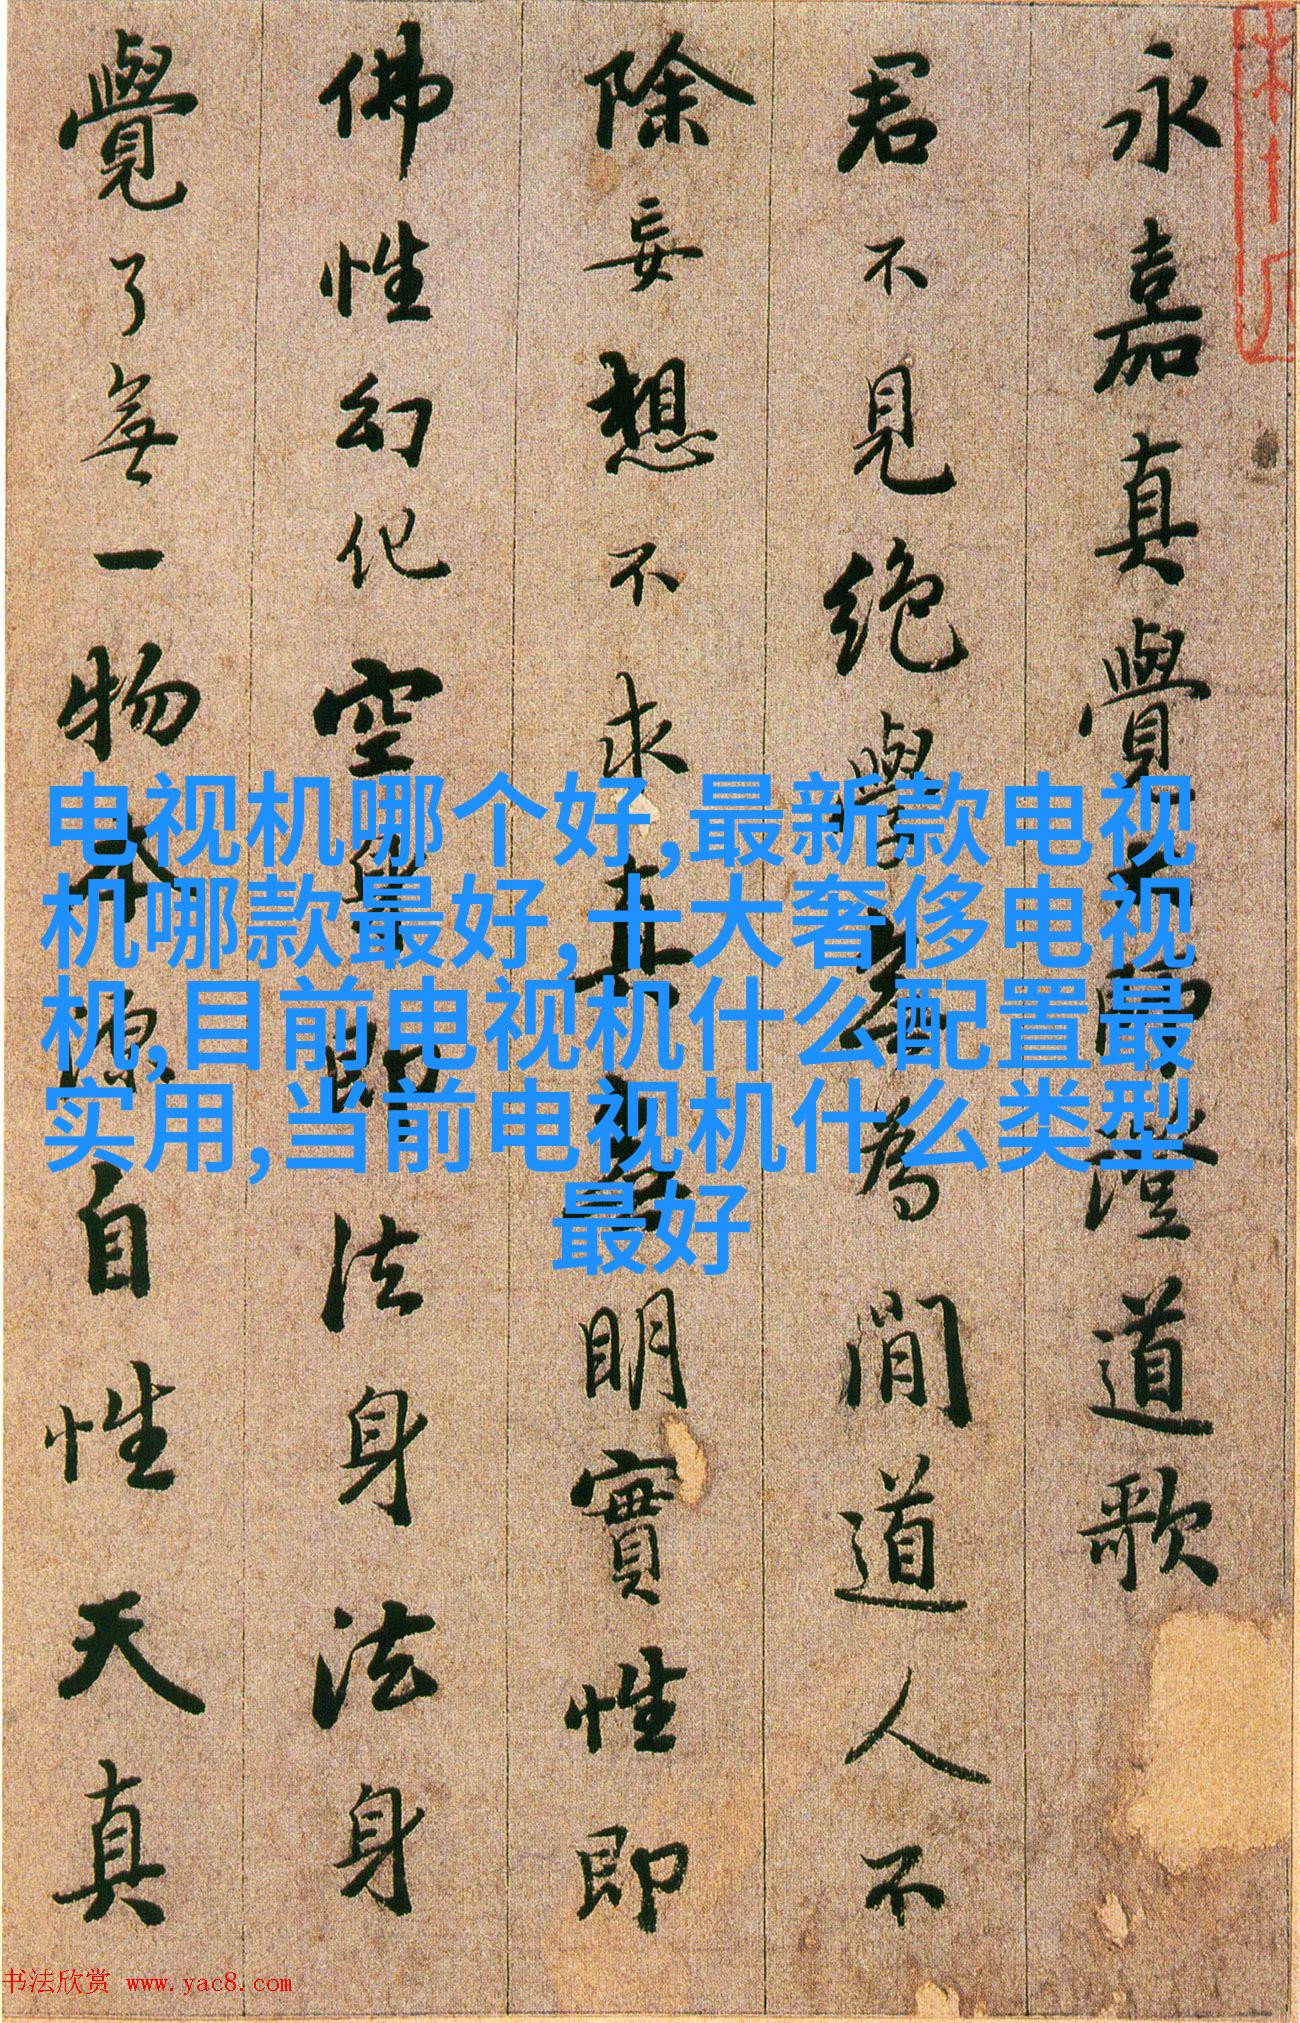 永嘉真覺大師澄道歌
君不見絕學無為閒道人不
除妄想不求真無明實性即
佛性幻化空身即法身法身
覺了無一物本源自性天真
电视机哪个好,最新款电视
机哪款最好,十大奢侈电视
机,目前电视机什么配置最
实用,当前电视机什么类型
最好
书法欣赏 www.yac8.com